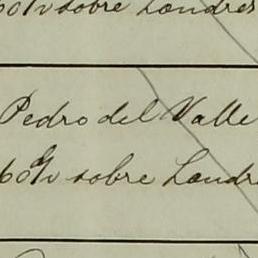 60 d/v sobre Londres
Pedro del Valle
60 d/v sobre Londr